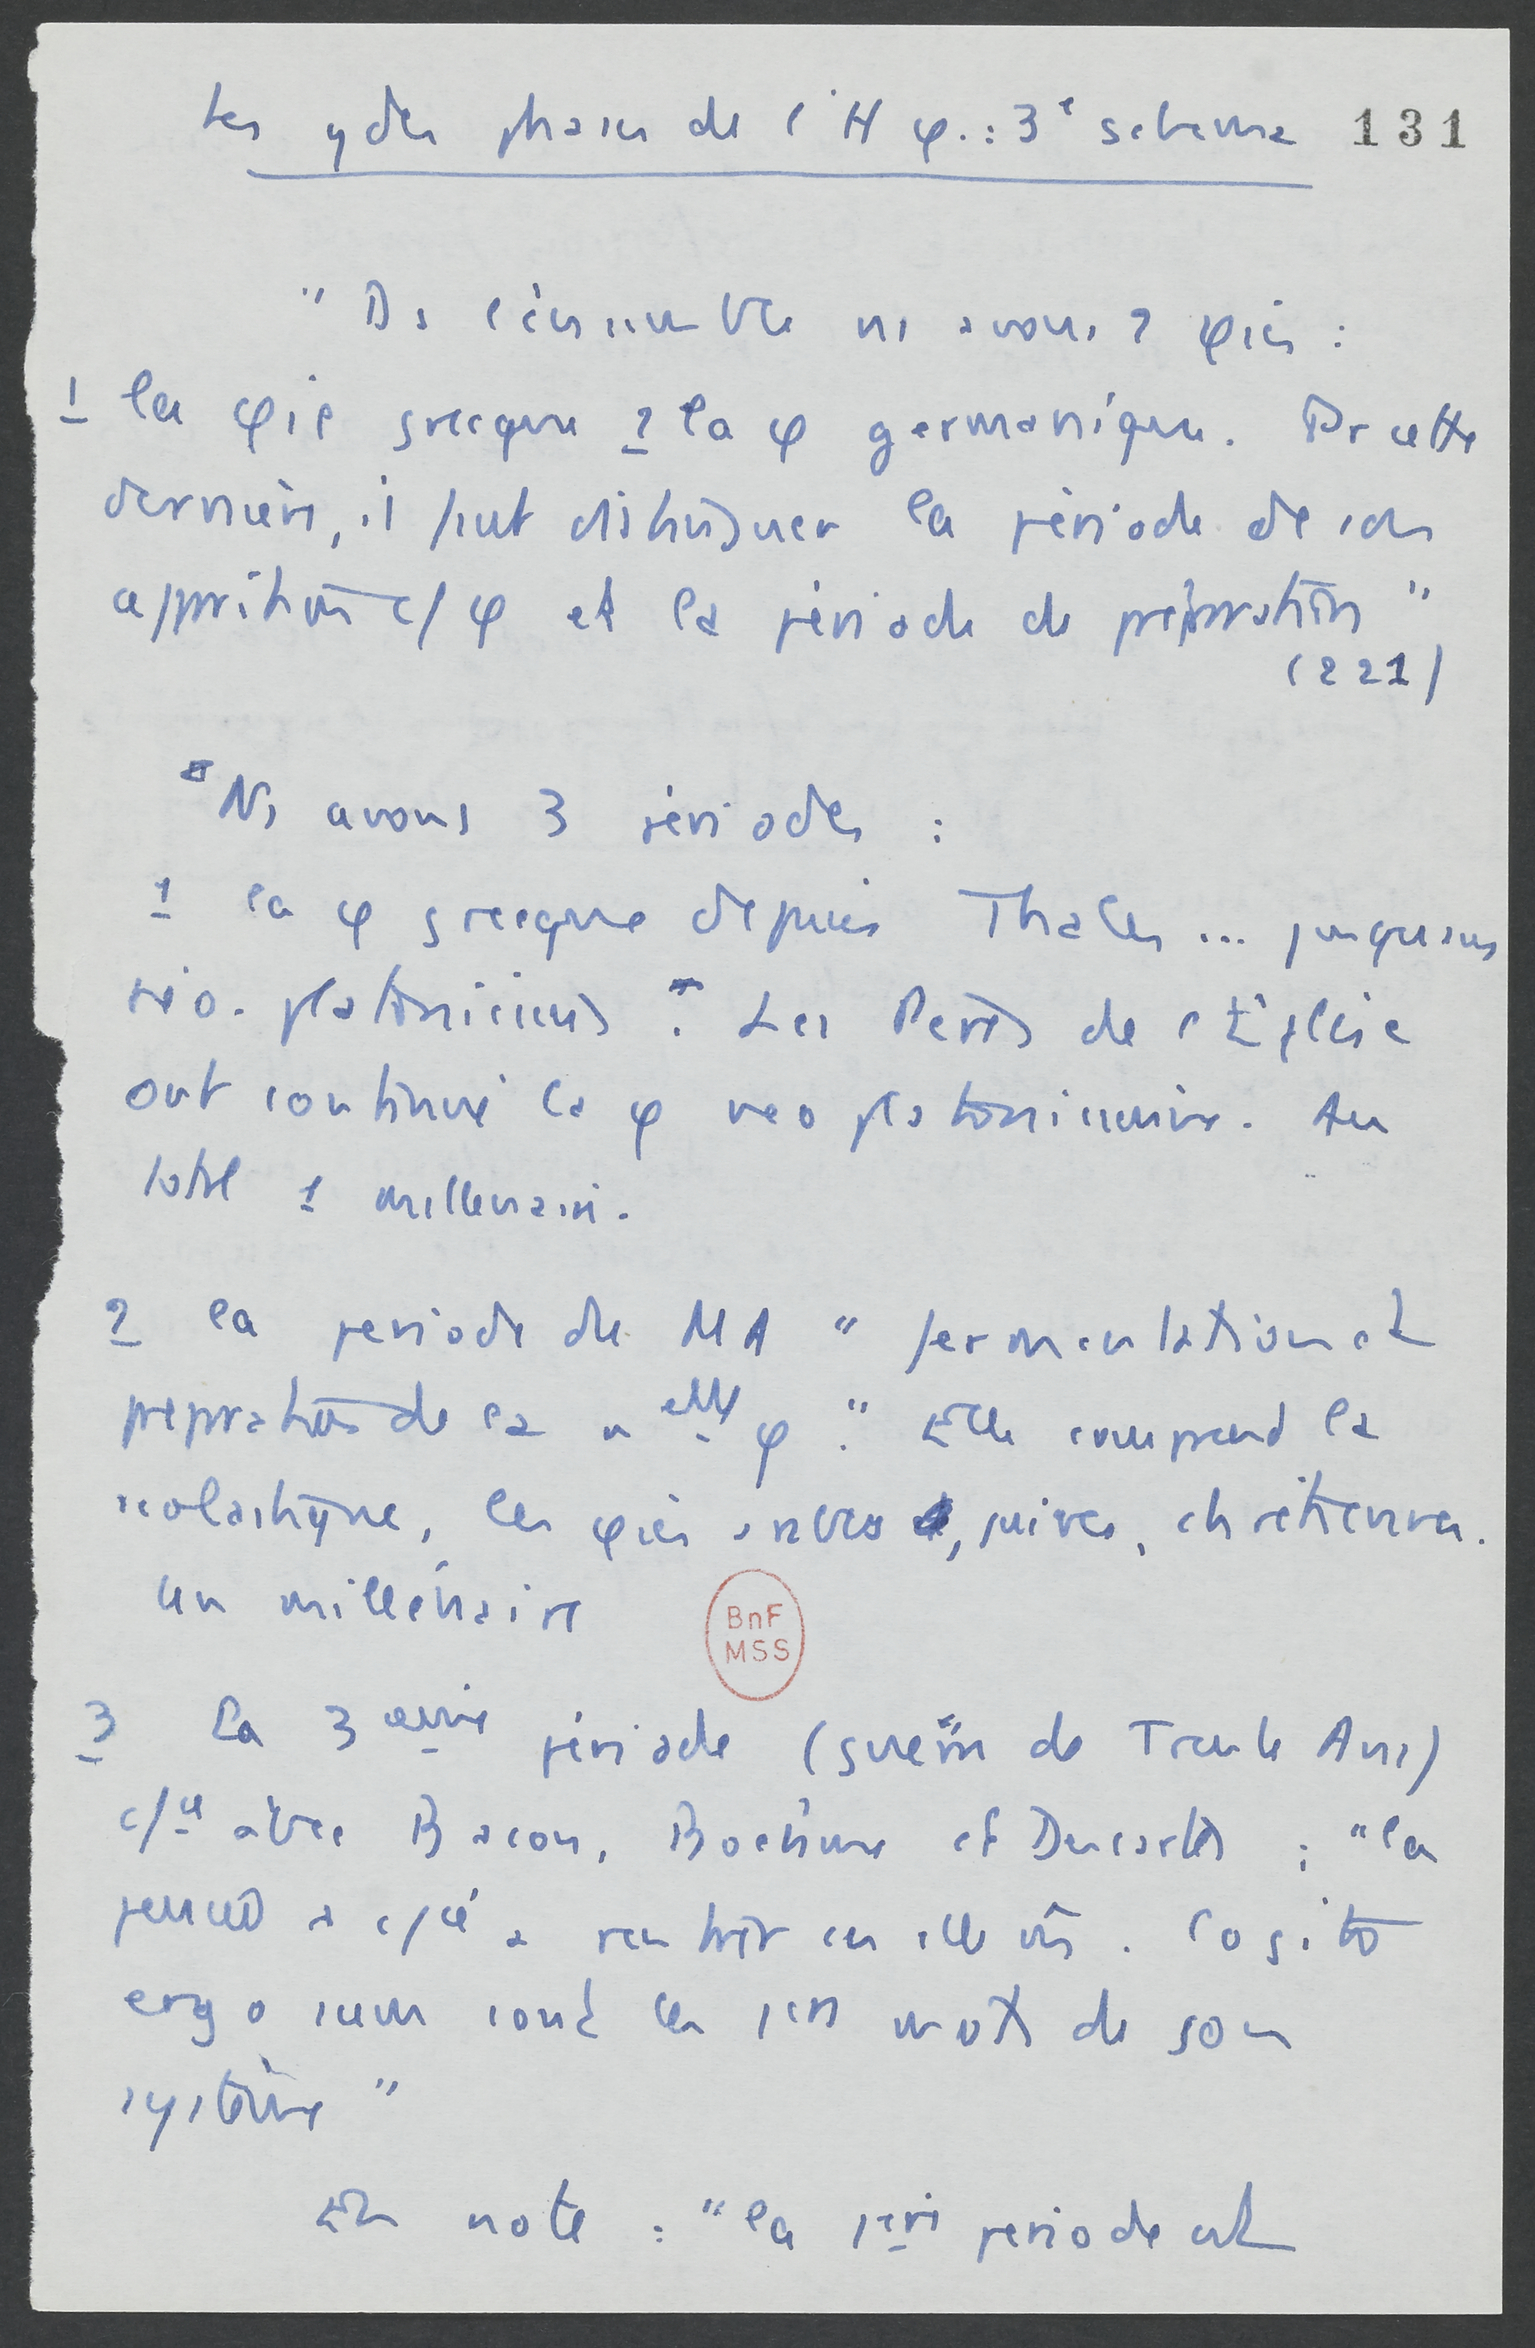 Les gdes phases de l'H φ. : 3e schema 131
" Ds l'ensemble ns avons 2 φies :
1 la φie grecque 2 la φ germanique. Pr cette
dernière, il faut distinguer la période de son
apparition c/ φ et la période de préparation "
(221)
" Ns avons 3 périodes :
1 la φ grecque depuis Thales ... jusqu'aux
néo-platoniciens ". Les Peres de l'Eglise
ont continué la φ neo platonicienne. Au
total 1 millenaire.
2 la periode du MA " fermentation et
preparation de la nelle φ ". Elle comprend la
scolastique, les φies arabes, juives, chretiennes.
Un millénaire
BnF
MSS
3 La 3eme période (guerre de Trente Ans)
c/ce avec Bacon, Boehme et Descartes : " la
pensée a c/cé a rentrer en elle m̂. Cogito
ergo sum sont les 1ers mots de son
système "
En note : " la 1ere periode est